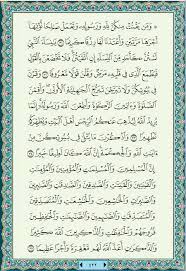 ۞ وَمَن يَقْنُتْ مِنكُنَّ لِلَّهِ وَرَسُولِهِۦ وَتَعْمَلْ صَٰلِحًا نُّؤْتِهَآ
أَجْرَهَا مَرَّتَيْنِ وَأَعْتَدْنَا لَهَا رِزْقًا كَرِيمًا ٣١ يَٰنِسَآءَ ٱلنَّبِيِّ
لَسْتُنَّ كَأَحَدٍ مِّنَ ٱلنِّسَآءِ إِنِ ٱتَّقَيْتُنَّ فَلَا تَخْضَعْنَ بِٱلْقَوْلِ
فَيَطْمَعَ ٱلَّذِي فِي قَلْبِهِۦ مَرَضٌ وَقُلْنَ قَوْلًا مَّعْرُوفًا ٣٢ وَقَرْنَ
فِي بُيُوتِكُنَّ وَلَا تَبَرَّجْنَ تَبَرُّجَ ٱلْجَٰهِلِيَّةِ ٱلْأُولَىٰ وَأَقِمْنَ
ٱلصَّلَوٰةَ وَءَاتِينَ ٱلزَّكَوٰةَ وَأَطِعْنَ ٱللَّهَ وَرَسُولَهُۥٓ إِنَّمَا يُرِيدُ ٱللَّهُ
لِيُذْهِبَ عَنكُمُ ٱلرِّجْسَ أَهْلَ ٱلْبَيْتِ وَيُطَهِّرَكُمْ تَطْهِيرًا ٣٣
وَٱذْكُرْنَ مَا يُتْلَىٰ فِي بُيُوتِكُنَّ مِنْ ءَايَٰتِ ٱللَّهِ وَٱلْحِكْمَةِ
إِنَّ ٱللَّهَ كَانَ لَطِيفًا خَبِيرًا ٣٤ إِنَّ ٱلْمُسْلِمِينَ وَٱلْمُسْلِمَٰتِ
وَٱلْمُؤْمِنِينَ وَٱلْمُؤْمِنَٰتِ وَٱلْقَٰنِتِينَ وَٱلْقَٰنِتَٰتِ وَٱلصَّٰدِقِينَ
وَٱلصَّٰدِقَٰتِ وَٱلصَّٰبِرِينَ وَٱلصَّٰبِرَٰتِ وَٱلْخَٰشِعِينَ وَٱلْخَٰشِعَٰتِ
وَٱلْمُتَصَدِّقِينَ وَٱلْمُتَصَدِّقَٰتِ وَٱلصَّٰٓئِمِينَ وَٱلصَّٰٓئِمَٰتِ
وَٱلْحَٰفِظِينَ فُرُوجَهُمْ وَٱلْحَٰفِظَٰتِ وَٱلذَّٰكِرِينَ ٱللَّهَ كَثِيرًا
وَٱلذَّٰكِرَٰتِ أَعَدَّ ٱللَّهُ لَهُم مَّغْفِرَةً وَأَجْرًا عَظِيمًا ٣٥
٤٢٢